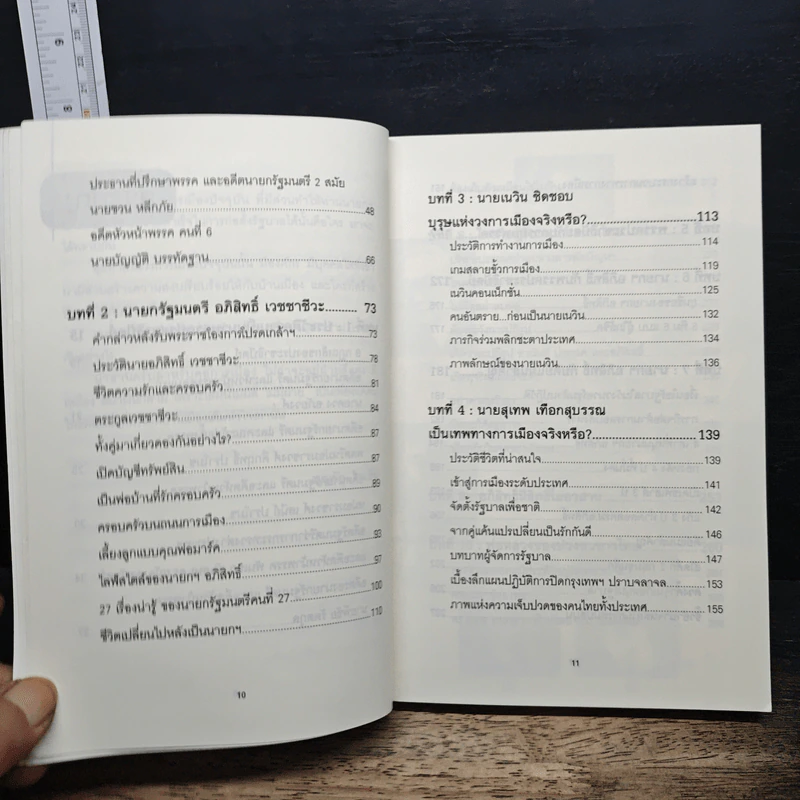 ประธานที่ปรึกษาพรรค และอดีตนายกรัฐมนตรี 2 สมัย
นายชวน หลีกภัย 48
อดีตหัวหน้าพรรค คนที่ 6
นายบัญญัติ บรรทัดฐาน 66
บทที่ 2 : นายกรัฐมนตรี อภิสิทธิ์ เวชชาชีวะ 73
คำกล่าวหลังรับพระราชโองการโปรดเกล้าฯ 75
ประวัตินายอภิสิทธิ์ เวชชาชีวะ 78
ชีวิตความรักและครอบครัว 81
ตระกูลเวชชาชีวะ 84
ทั้งคู่มาเกี่ยวดองกันอย่างไร? 87
เปิดบัญชีทรัพย์สิน 87
เป็นพ่อบ้านที่รักครอบครัว 89
ครอบครัวบนถนนการเมือง 90
เลี้ยงลูกแบบคุณพ่อมาร์ค 93
ไลฟ์สไตล์ของนายกฯ อภิสิทธิ์ 97
27 เรื่องน่ารู้ ของนายกรัฐมนตรีคนที่ 27 100
ชีวิตเปลี่ยนไปหลังเป็นนายกฯ 110
10
บทที่ 3 : นายเนวิน ชิดชอบ
บุรุษแห่งวงการเมืองจริงหรือ? 113
ประวัติการทำงานการเมือง 114
เกมสลายขั้วการเมือง 119
เนวินคอนเน็กชั่น 125
คนอันตราย...ก่อนเป็นนายเนวิน 132
ภารกิจร่วมพลิกชะตาประเทศ 134
ภาพลักษณ์ของนายเนวิน 136
บทที่ 4 : นายสุเทพ เทือกสุบรรณ
เป็นเทพทางการเมืองจริงหรือ? 139
ประวัติชีวิตที่น่าสนใจ 139
เข้าสู่การเมืองระดับประเทศ 141
จัดตั้งรัฐบาลเพื่อชาติ 142
จากคู่แค้นแปรเปลี่ยนเป็นรักกันดี 146
บทบาทผู้จัดการรัฐบาล 147
เบื้องลึกแผนปฏิบัติการปิดกรุงเทพฯ ปราบจลาจล 153
ภาพแห่งความเจ็บปวดของคนไทยทั้งประเทศ 155
11